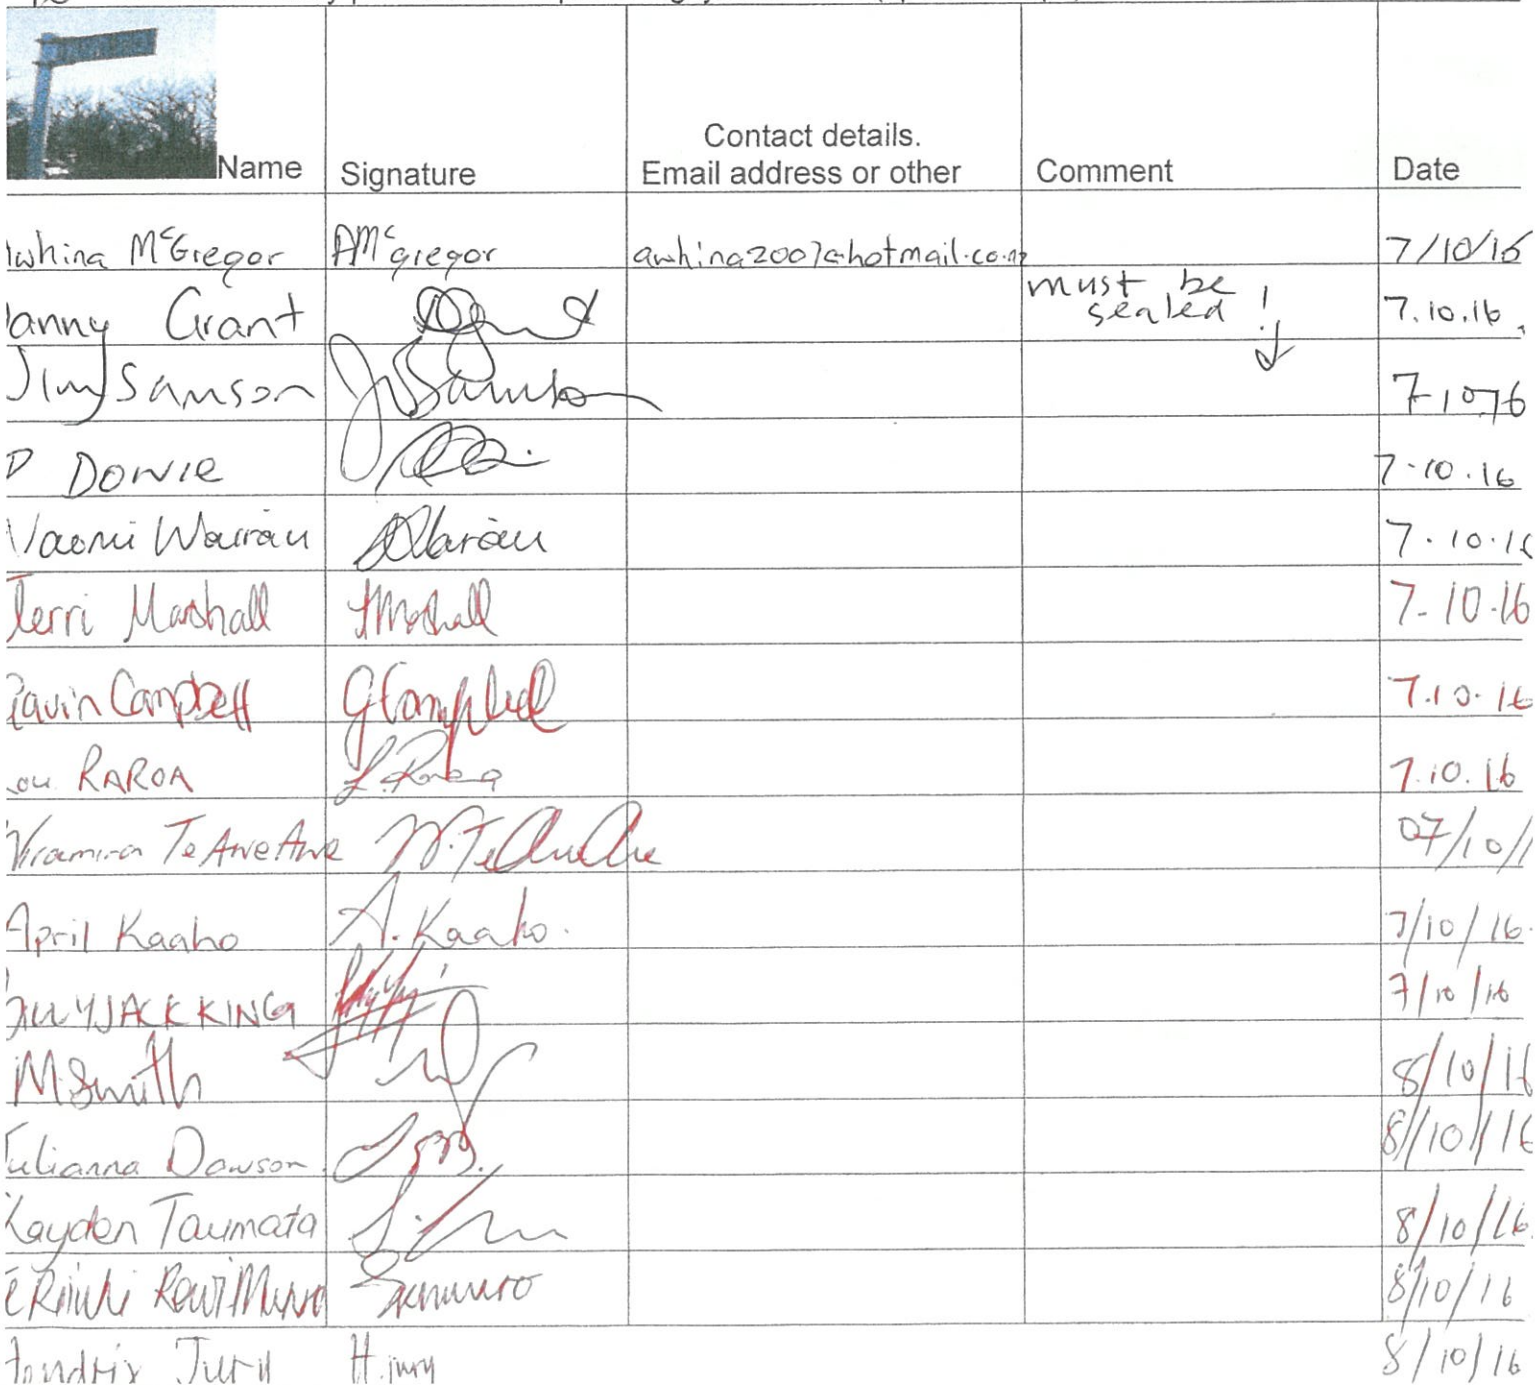 Name Signature Contact details. Email address or other Comment Date
whina McGregor AMcgregor awhina2007@hotmail.co.nz 7/10/16
anny Grant must be sealed! 7.10.16
Jim Samson JSamson 7 10 16
P Dowie 7.10.16
Naomi Warrau 7.10.16
Terri Marshall TMarshall 7.10.16
Gavin Campbell GCampbell 7.10.16
Lou RAROA L.Raroa 7.10.16
Te AweAwe W.TeAweAwe 07/10/1
April Kaaho A.Kaaho. 7/10/16.
JACK KING 7/10/16
M Smith 8/10/16
Julianna Dawson 8/10/16
Kayden Taumata 8/10/16
8/10/16
Hendrix Jury H.jury 8/10/16